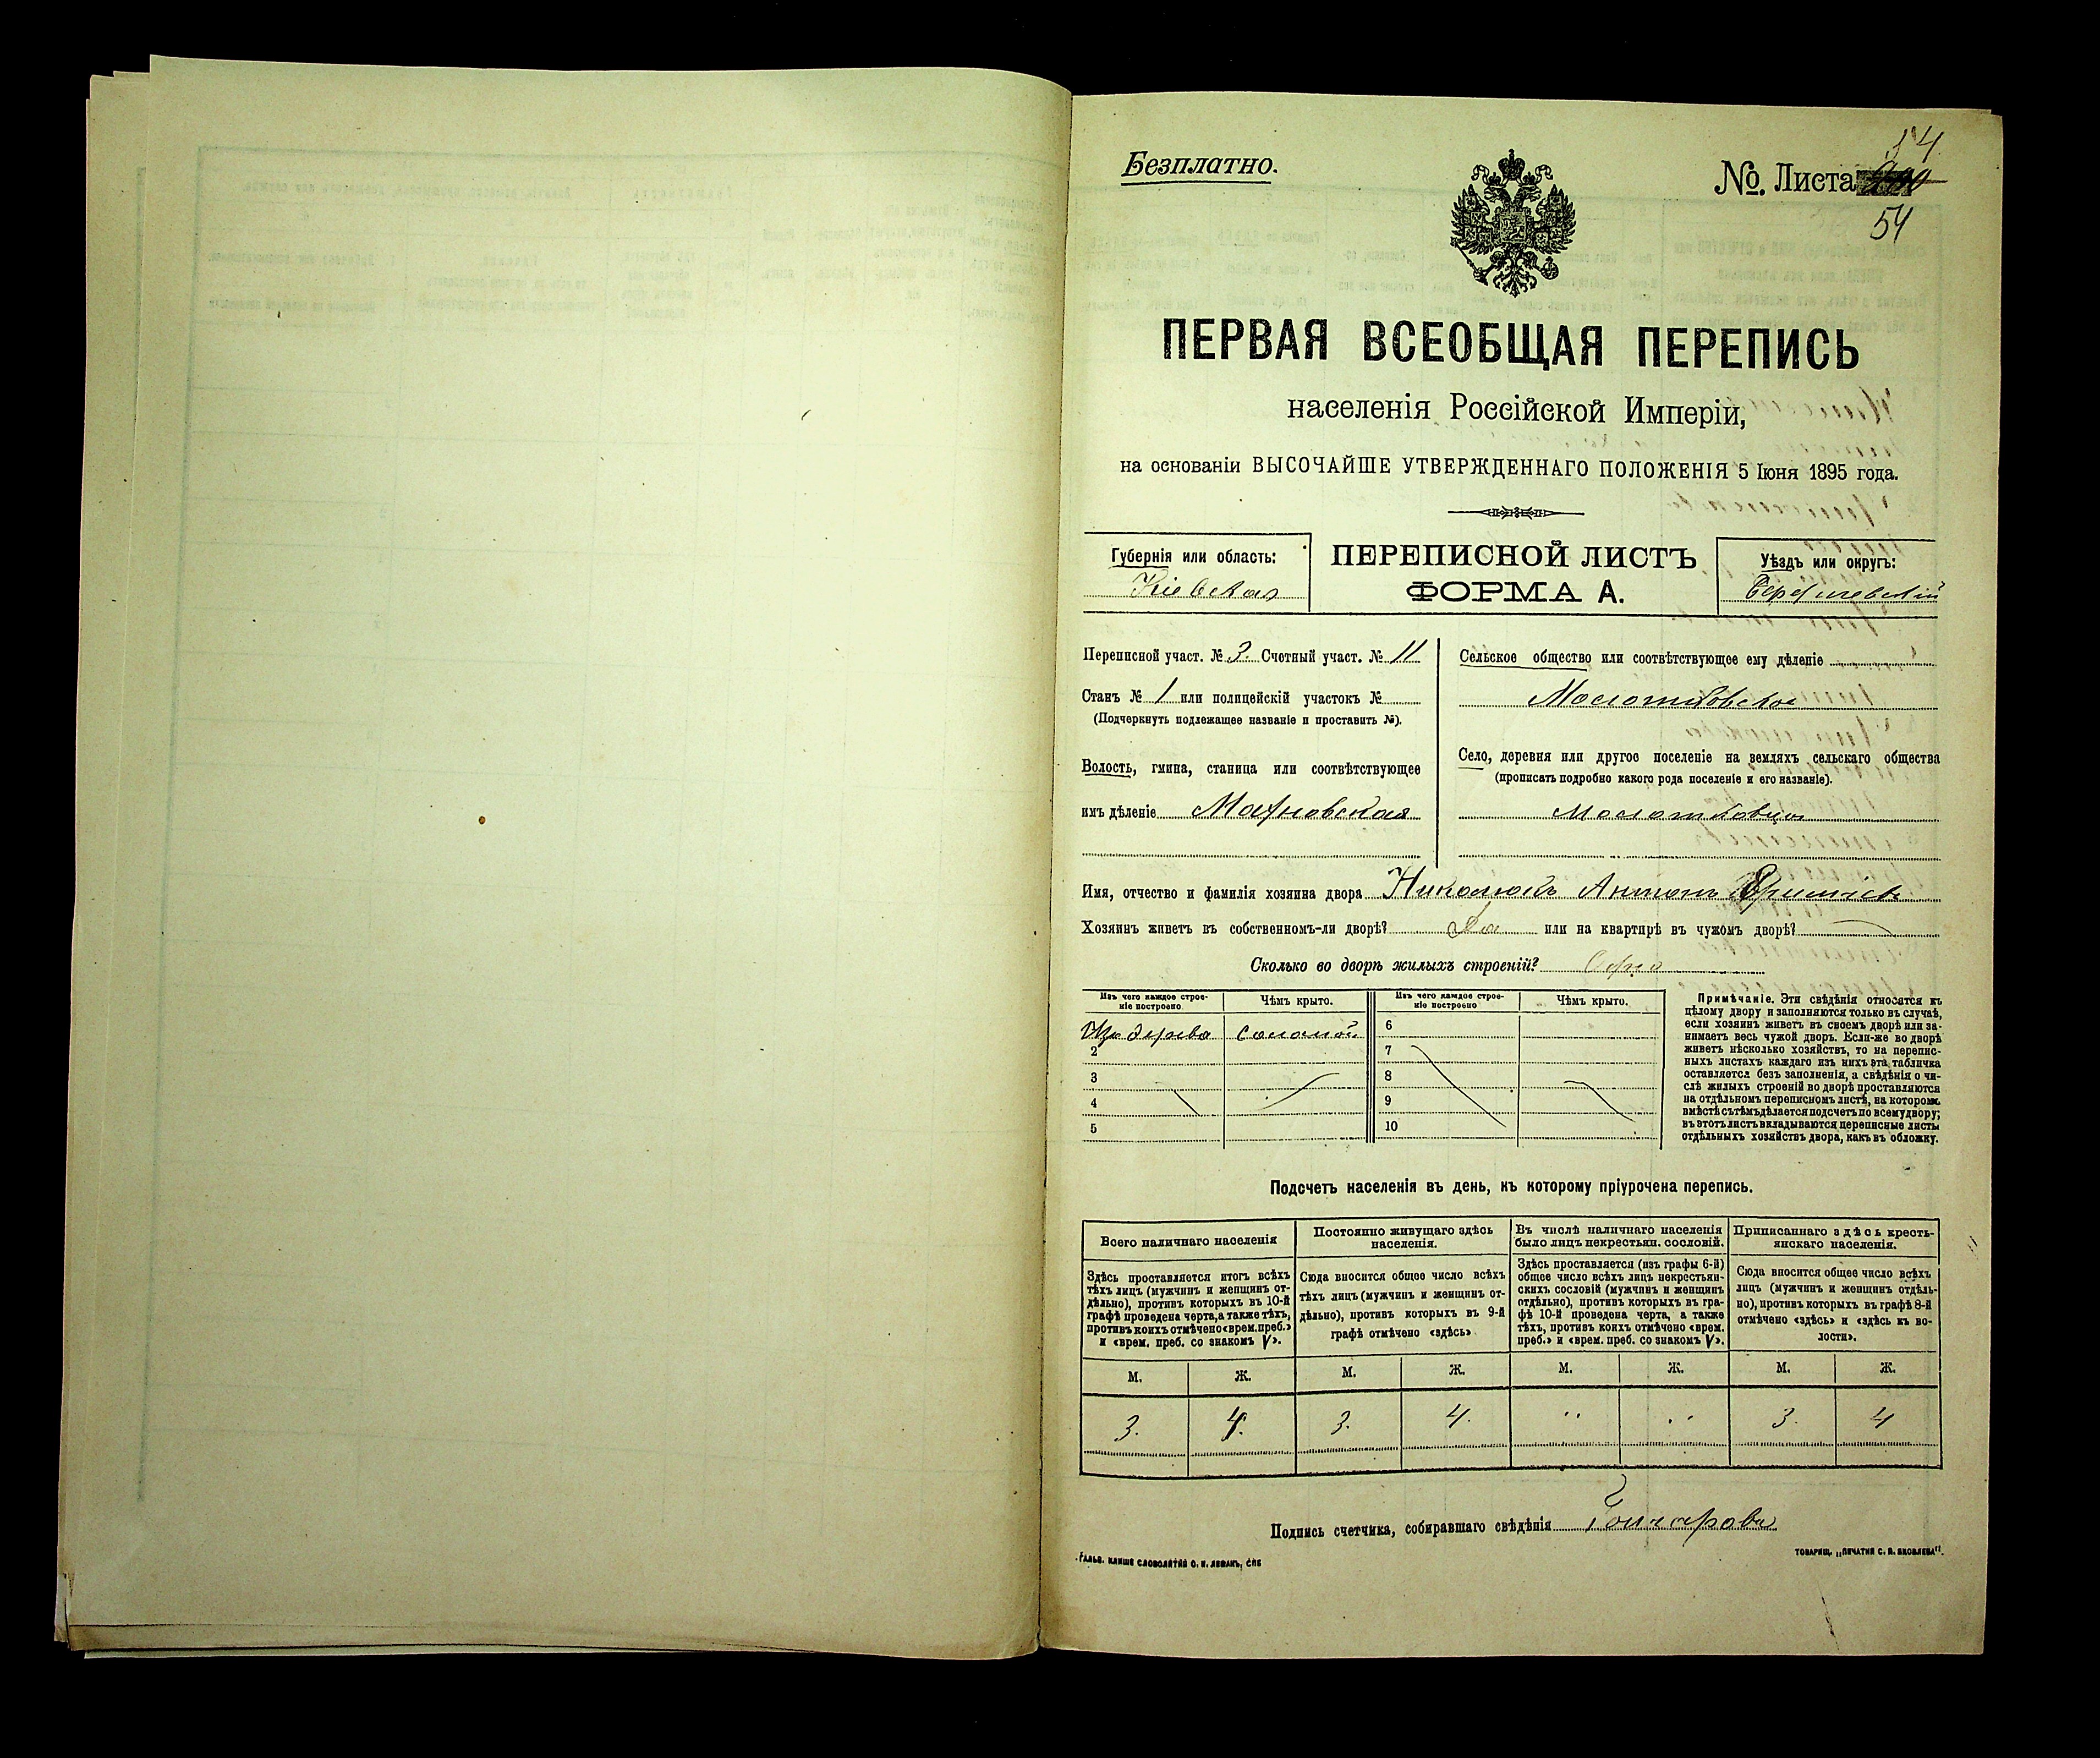 54
Безплатно.
№. Листа
54
ПЕРВАЯ ВСЕОБЩАЯ ПЕРЕПИСЬ
населенія Россійской Имперіи,
на основаніи ВЫСОЧАЙШЕ УТВЕРЖДЕННАГО ПОЛОЖЕНІЯ 5 Іюня 1895 года.
Губернія или область:
Кіевская
ПЕРЕПИСНОЙ ЛИСТЪ
ФОРМА А.
Уѣздъ или округъ:
Бердичевскій
Переписной участ. № 3. Счетный участ. № 11
Станъ № 1 или полицейскій участокъ №
(Подчеркнуть подлежащее названіе и проставить №).
Волость, гмина, станица или соотвѣтствующее
имъ дѣленіе Махновская
Сельское общество или соотвѣтствующее ему дѣленіе
Молотковское
Село, деревня или другое поселеніе на земляхъ сельскаго общества
(прописать подробно какого рода поселеніе и его названіе).
Имя, отчество и фамилія хозяина двора Николюкъ Антонъ
Хозяинъ живетъ въ собственномъ-ли дворѣ? Да или на квартирѣ въ чужомъ дворѣ?
Сколько во дворѣ жилыхъ строеній? Одно
Изъ чего каждое строе-
ніе построено
Чѣмъ крыто.
Изъ чего каждое строе-
ніе построено
Чѣмъ крыто.
Изъ дерева Соломой
2
3
4
5
6
7
8
9
10
Примѣчаніе. Эти свѣдѣнія относятся къ
цѣлому двору и заполняются только въ случаѣ,
если хозяинъ живетъ въ своемъ дворѣ или за-
нимаетъ весь чужой дворъ. Если-же во дворѣ
живетъ нѣсколько хозяйствъ, то на перепис-
ныхъ листахъ каждаго изъ нихъ эта табличка
оставляется безъ заполненія, а свѣдѣнія о чи-
слѣ жилыхъ строеній во дворѣ проставляются
на отдѣльномъ переписномъ листѣ, на которомъ
вмѣстѣ съ тѣмъ дѣлается подсчетъ по всему двору;
въ этотъ листъ вкладываются переписные листы
отдѣльныхъ хозяйствъ двора, какъ въ обложку.
Подсчетъ населенія въ день, къ которому пріурочена перепись.
Всего наличнаго населенія
Здѣсь проставляется итогъ всѣхъ
тѣхъ лицъ (мужчинъ и женщинъ от-
дѣльно), противъ которыхъ въ 10-й
графѣ проведена черта, а также тѣхъ,
противъ коихъ отмѣчено «врем. преб.»
и «врем. преб. со знакомъ V».
Постоянно живущаго здѣсь
населенія.
Сюда вносится общее число всѣхъ
тѣхъ лицъ (мужчинъ и женщинъ от-
дѣльно), противъ которыхъ въ 9-й
графѣ отмѣчено «здѣсь»
Въ числѣ наличнаго населенія
было лицъ некрестьян. сословій.
Здѣсь проставляется (изъ графы 6-й)
общее число всѣхъ лицъ некрестьян-
скихъ сословій (мужчинъ и женщинъ
отдѣльно), противъ которыхъ въ гра-
фѣ 10-й проведена черта, а также
тѣхъ, противъ коихъ отмѣчено «врем.
преб.» и «врем. преб. со знакомъ V».
Приписаннаго здѣсь кресть-
янскаго населенія.
Сюда вносится общее число всѣхъ
лицъ (мужчинъ и женщинъ отдѣль-
но), противъ которыхъ въ графѣ 8-й
отмѣчено «здѣсь» и «здѣсь къ во-
лости».
М. Ж. М. Ж. М. Ж. М. Ж.
3. 4. 3. 4. " " 3. 4
Подпись счетчика, собиравшаго свѣдѣнія Гончаровъ
Гальв. клише словолитни О. И. Леманъ, СПБ
Товарищ. „Печатня С. П. Яковлева“.